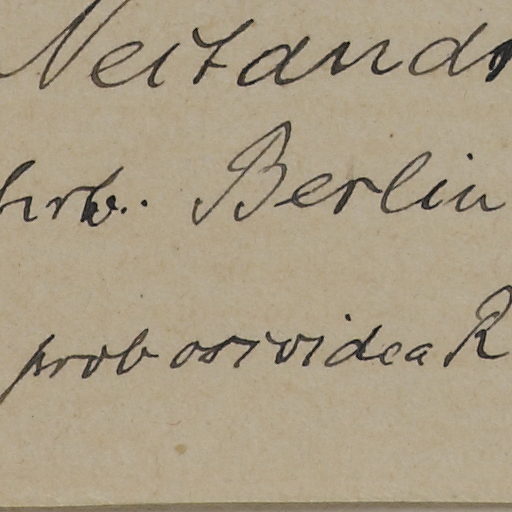 Neitandr
hrb. Berlin
probosividea R